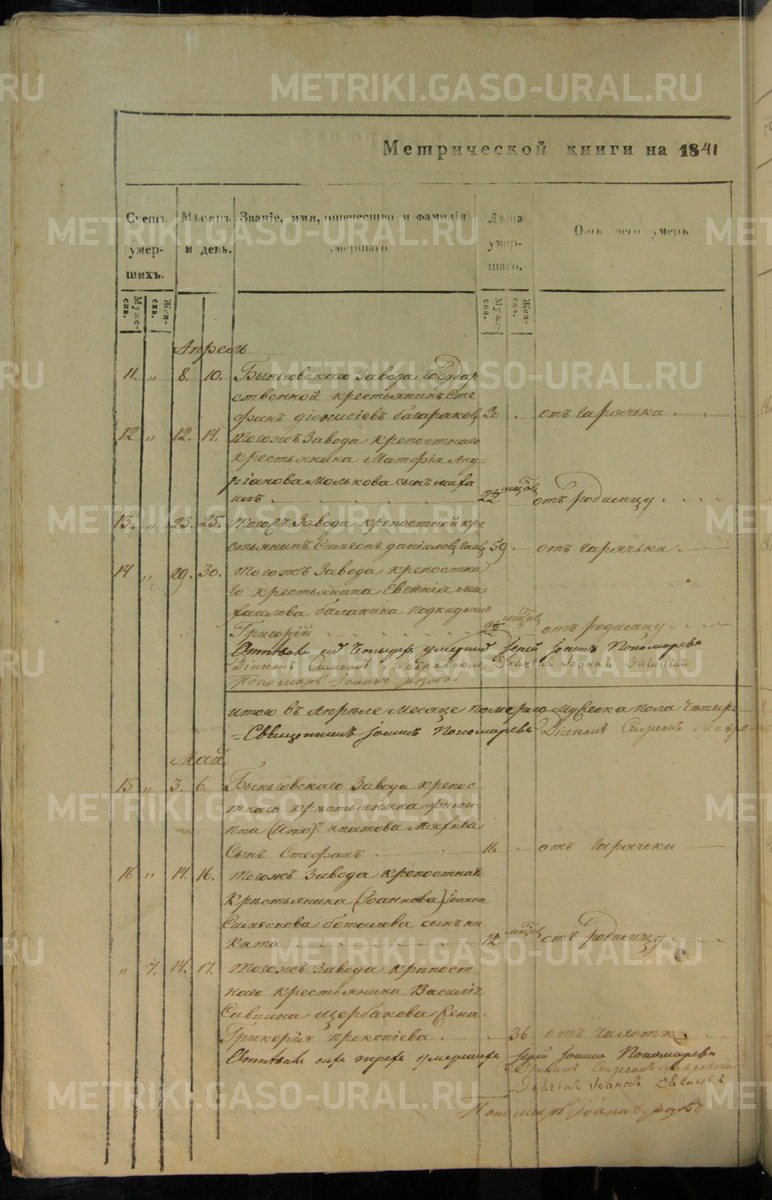 METRIKI.GASO-URAL.RU
Метрической книги на 1841
Счетъ умер-шихъ.
Мужеска. Женска.
Мѣсяцъ и день.
Званіе, имя, отчество и фамилія умершаго.
Лѣта умер-шаго.
Мужеска. Женска.
Отъ чего умеръ
Апрель
11. „ 8. 10. Быньговскаго Завода Государ
ственной крестьянинъ Сте
фанъ Діонисіевъ 20 отъ горячьки
12 „ 12. 14. Тогожъ Завода крепостнаго
крестьянина
сынъ Миха
илъ 22 отъ родимцу
13. „ 23. 25. Тогожъ Завода крепостной кре
стьянинъ Симеонъ Даніиловъ 59 отъ горячьки
14 „ 29. 30. Тогожъ Завода крепостна
го крестьянина Евгенія Ми
хаилова Балакина подкидышъ
Григорій отъ родимцу
Отпевали сихъ четырехъ умершихъ Іерей Іоаннъ Пономаревъ
Діаконъ Симеонъ Дьячекъ Іоаннъ
Пономарь Іоаннъ
Итого въ Апрѣле месяце померло мужеска пола четыре
Священникъ Іоаннъ Пономаревъ Діаконъ Симеонъ
Май
15 „ 3. 6. Быньговскаго Завода крепос
тнаго крестьянина Фили
ппа Ипатова
сынъ Стефанъ 16 отъ горячки
16 „ 14. 16. Тогожъ Завода крепостнаго
крестьянина (Іоаннова) Іоанна
Симеонова сынъ Ни
кита 12 отъ родимцу
„ 7. 14. 17. Тогожъ Завода крепост
наго крестьянина Василія
Саввина Щербакова жена
Гликерія Прокопіева 36 отъ чахотки
Отпевали сихъ трехъ умершихъ Іерей Іоаннъ Пономаревъ
Діаконъ Симеонъ
Дьячекъ Іоаннъ
Пономарь Іоаннъ